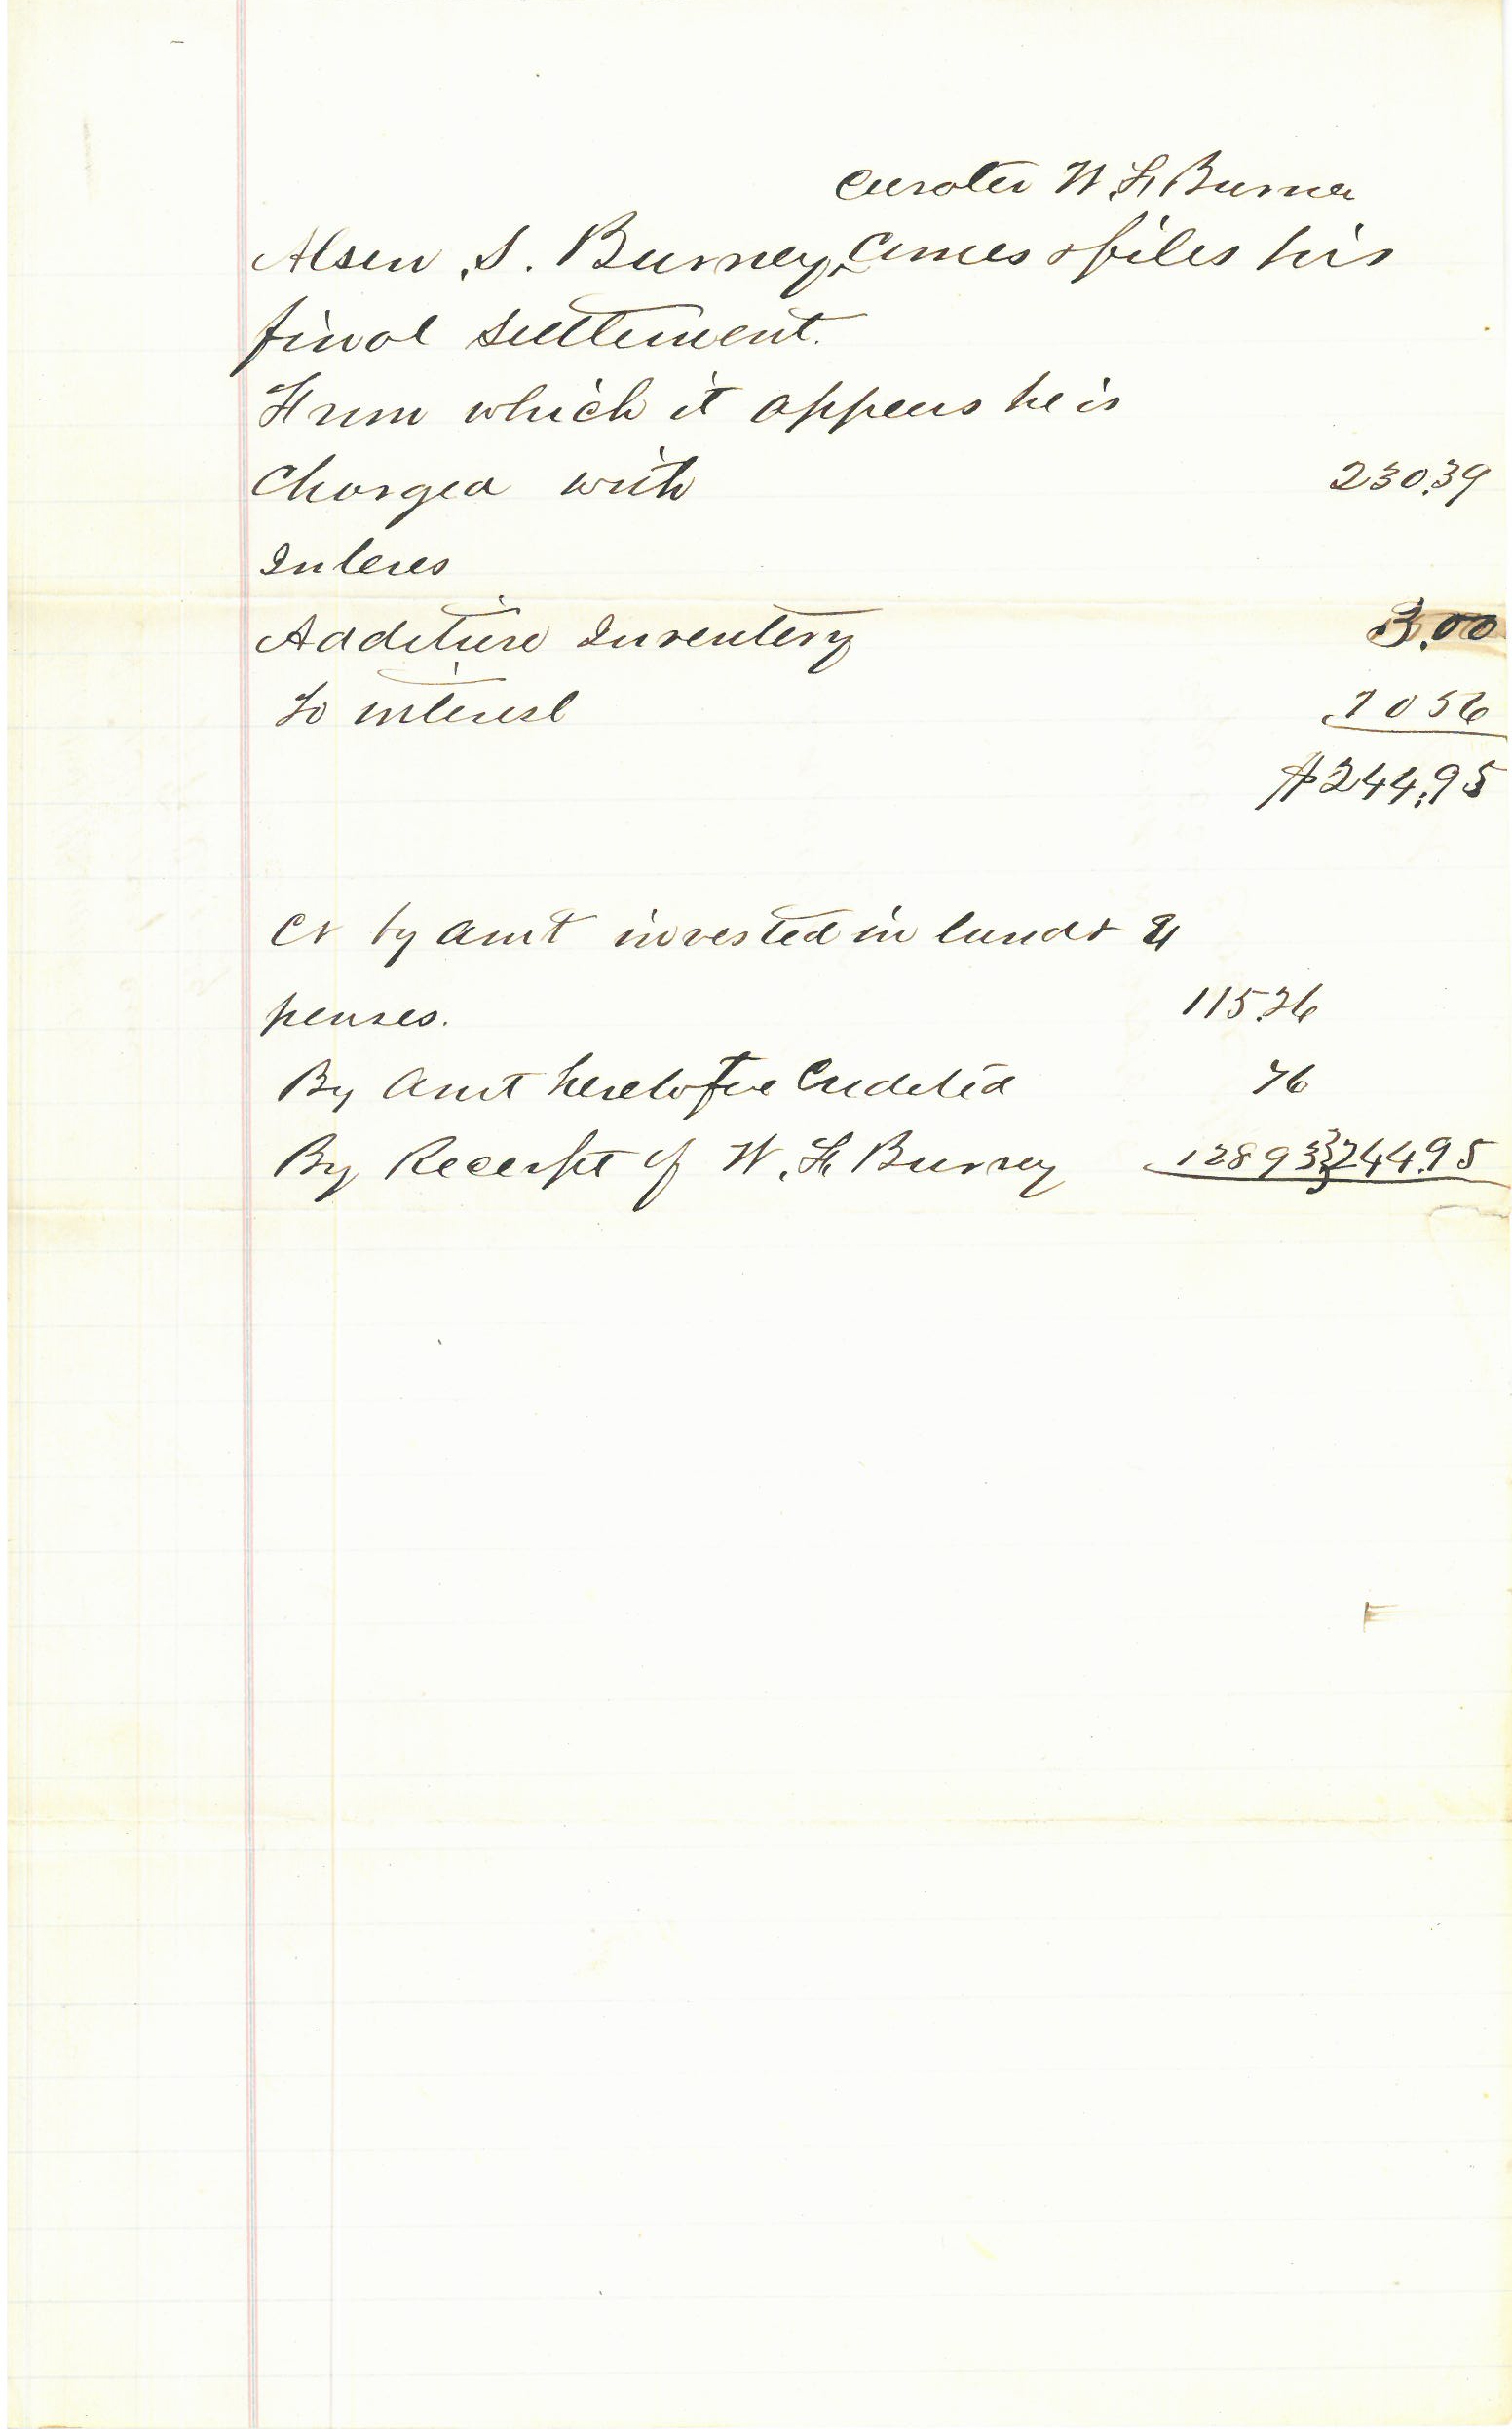 Curator W. H. Burney
Alsen S. Burney, Comes & files his
final Settlement.
From which it appears he is
Charged with 230.39
Interes
Additure Inventory 3.00
To interest 10 56
$244.95
Cr by amt invested in lands & Ex
penses. 115.26
By Amt heretofore Credited 76
By Receipt of W. H. Burney 128 93 } 244.95